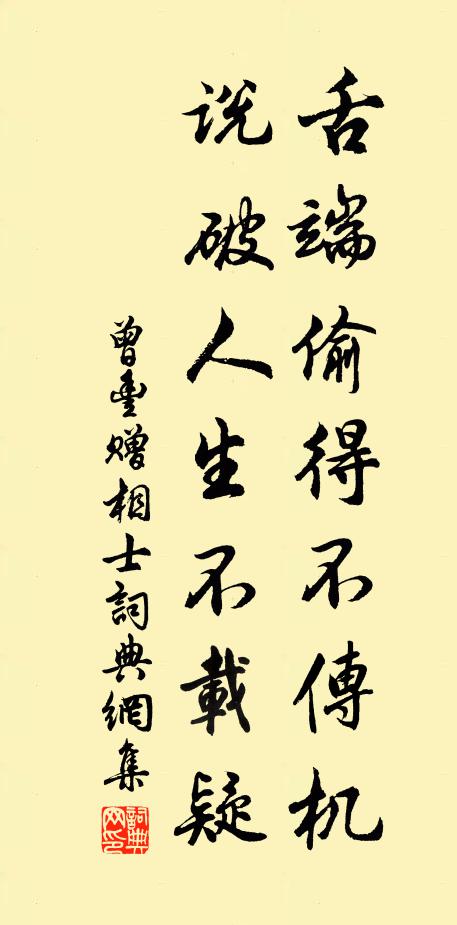 舌端偷得不傳机
说破人生不載疑
曾豐贈相士詞典網集
詞典网印